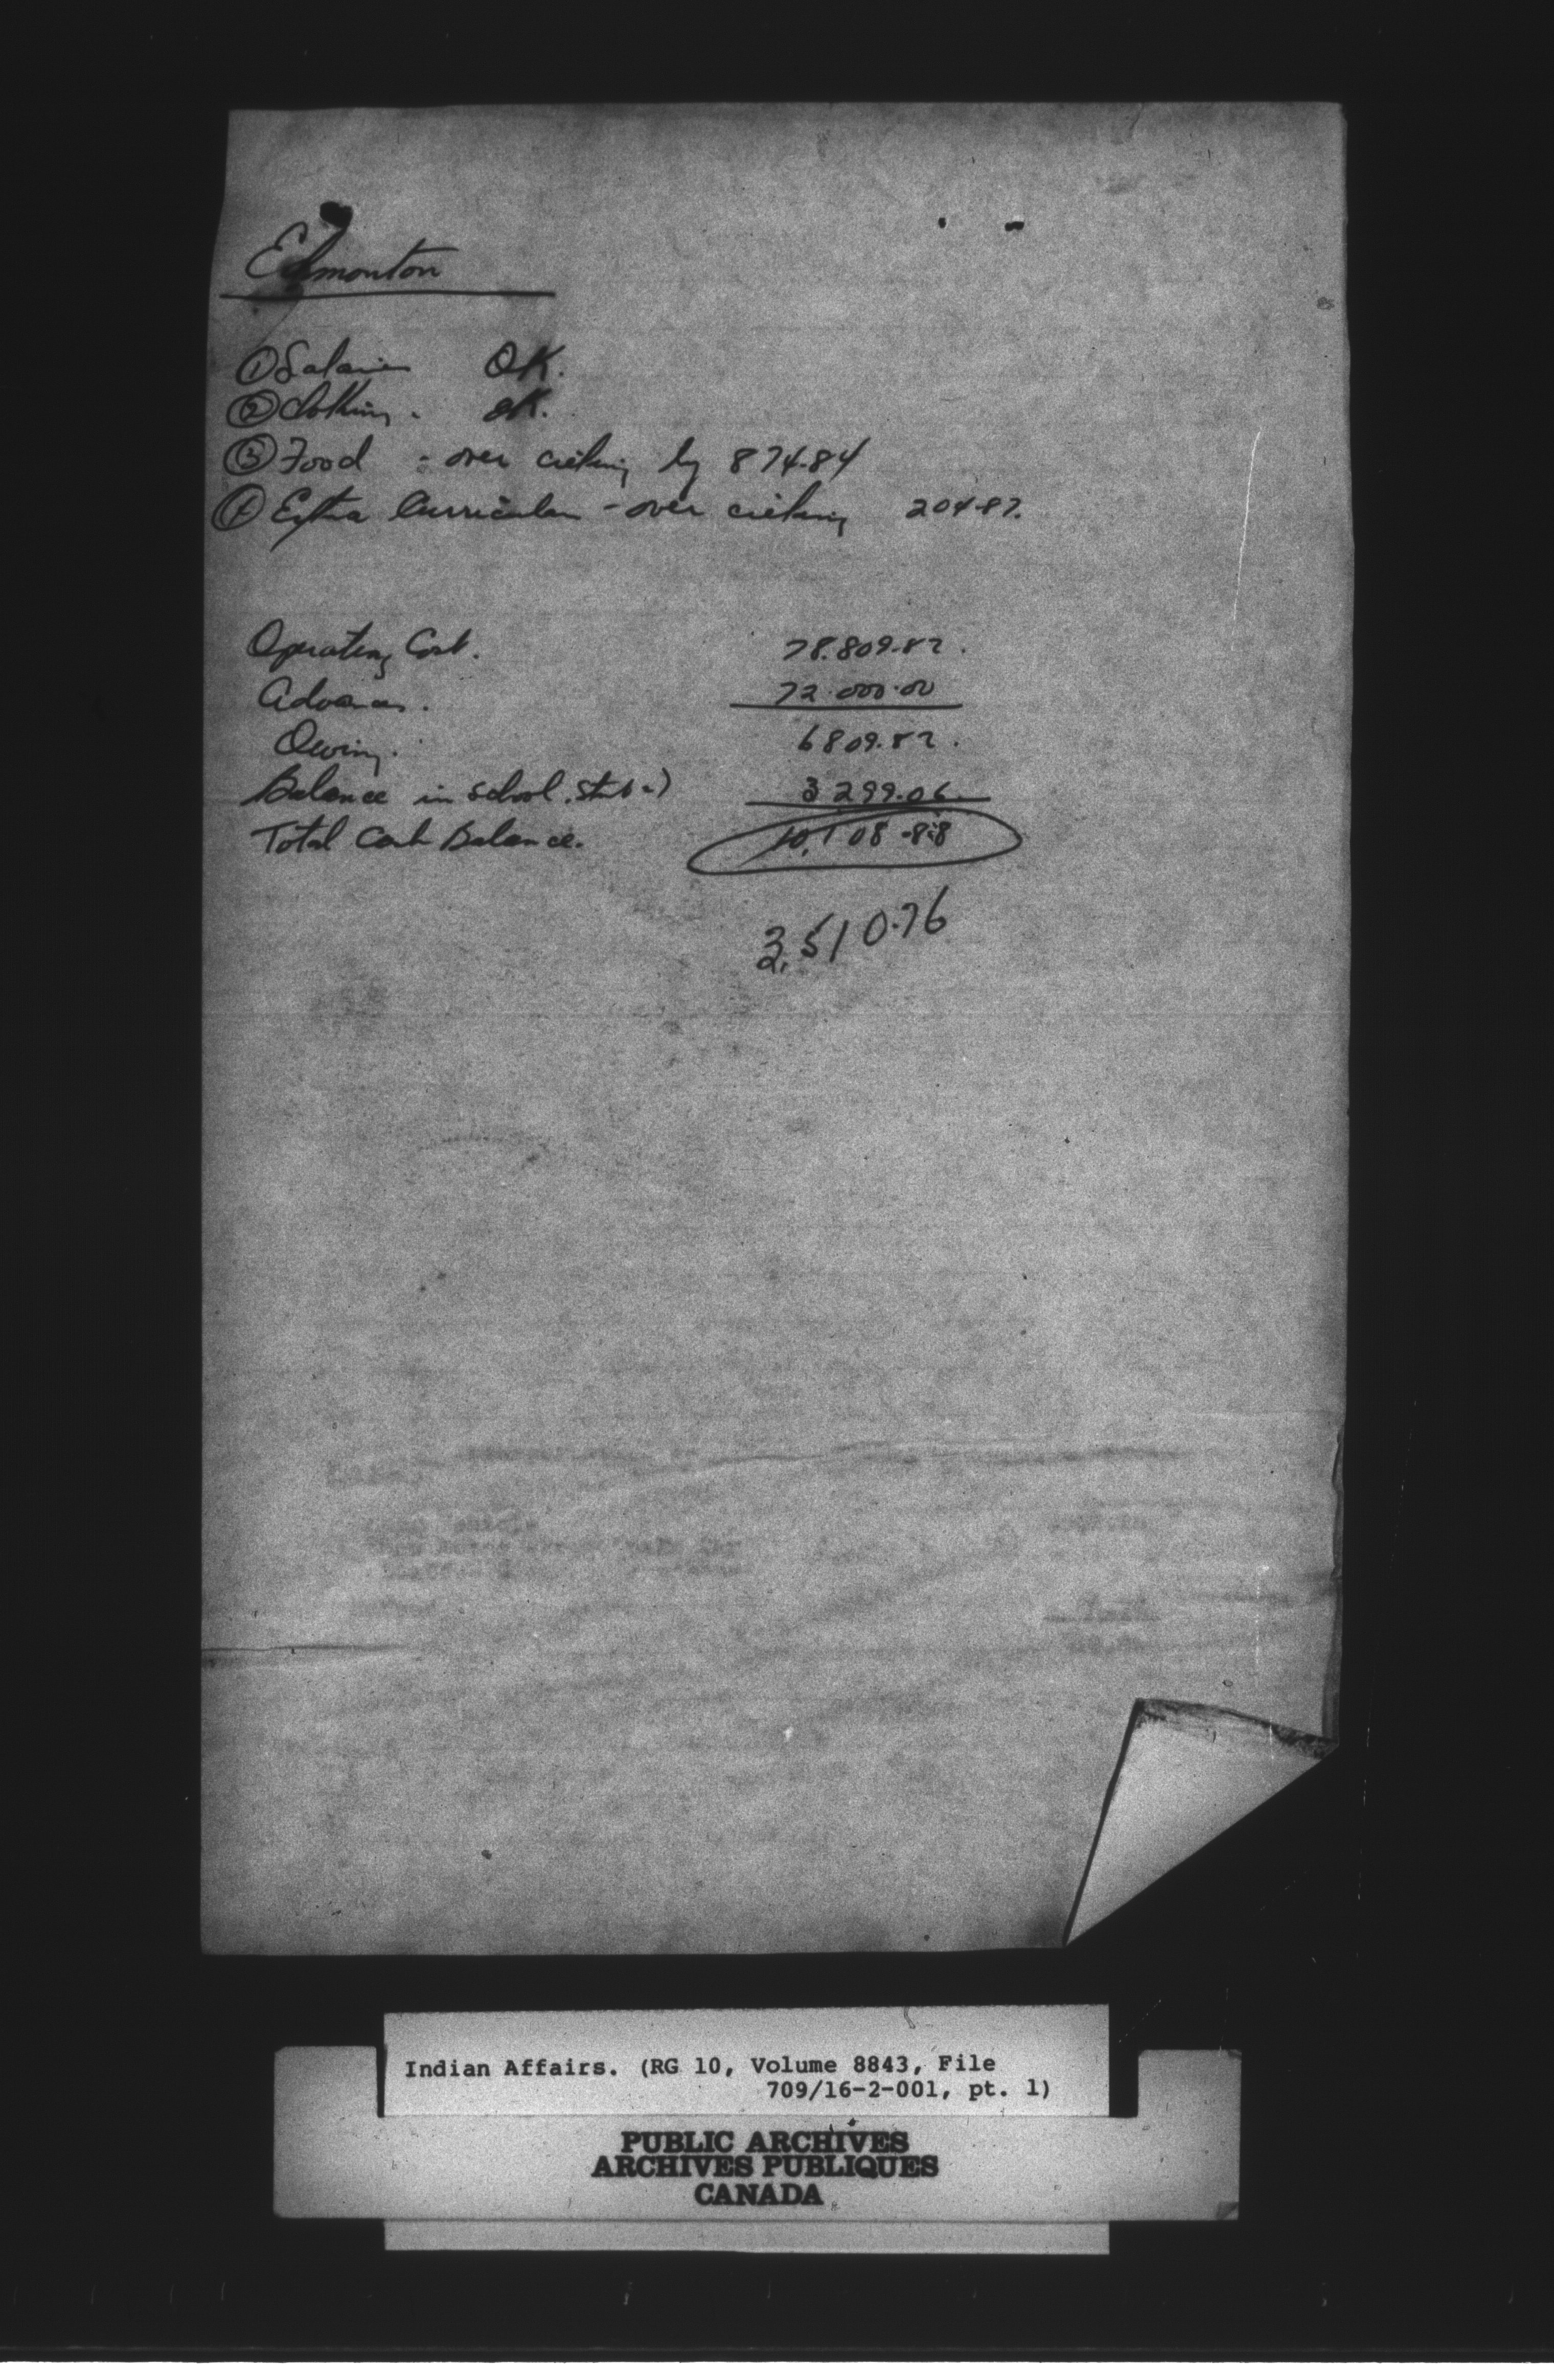 Edmonton
① Salaries OK.
② Clothing. OK.
③ Food - over ceiling by 874.84
④ Extra Curricular - over ceiling 204.87.
Operating Cost. 78.809.82.
Advances. 72.000.00
Owing. 6809.82.
Balance in School. 3299.06
Total Cash Balance. 10,108.88
3,510.76
Indian Affairs. (RG 10, Volume 8843, File
709/16-2-001, pt. 1)
PUBLIC ARCHIVES
ARCHIVES PUBLIQUES
CANADA